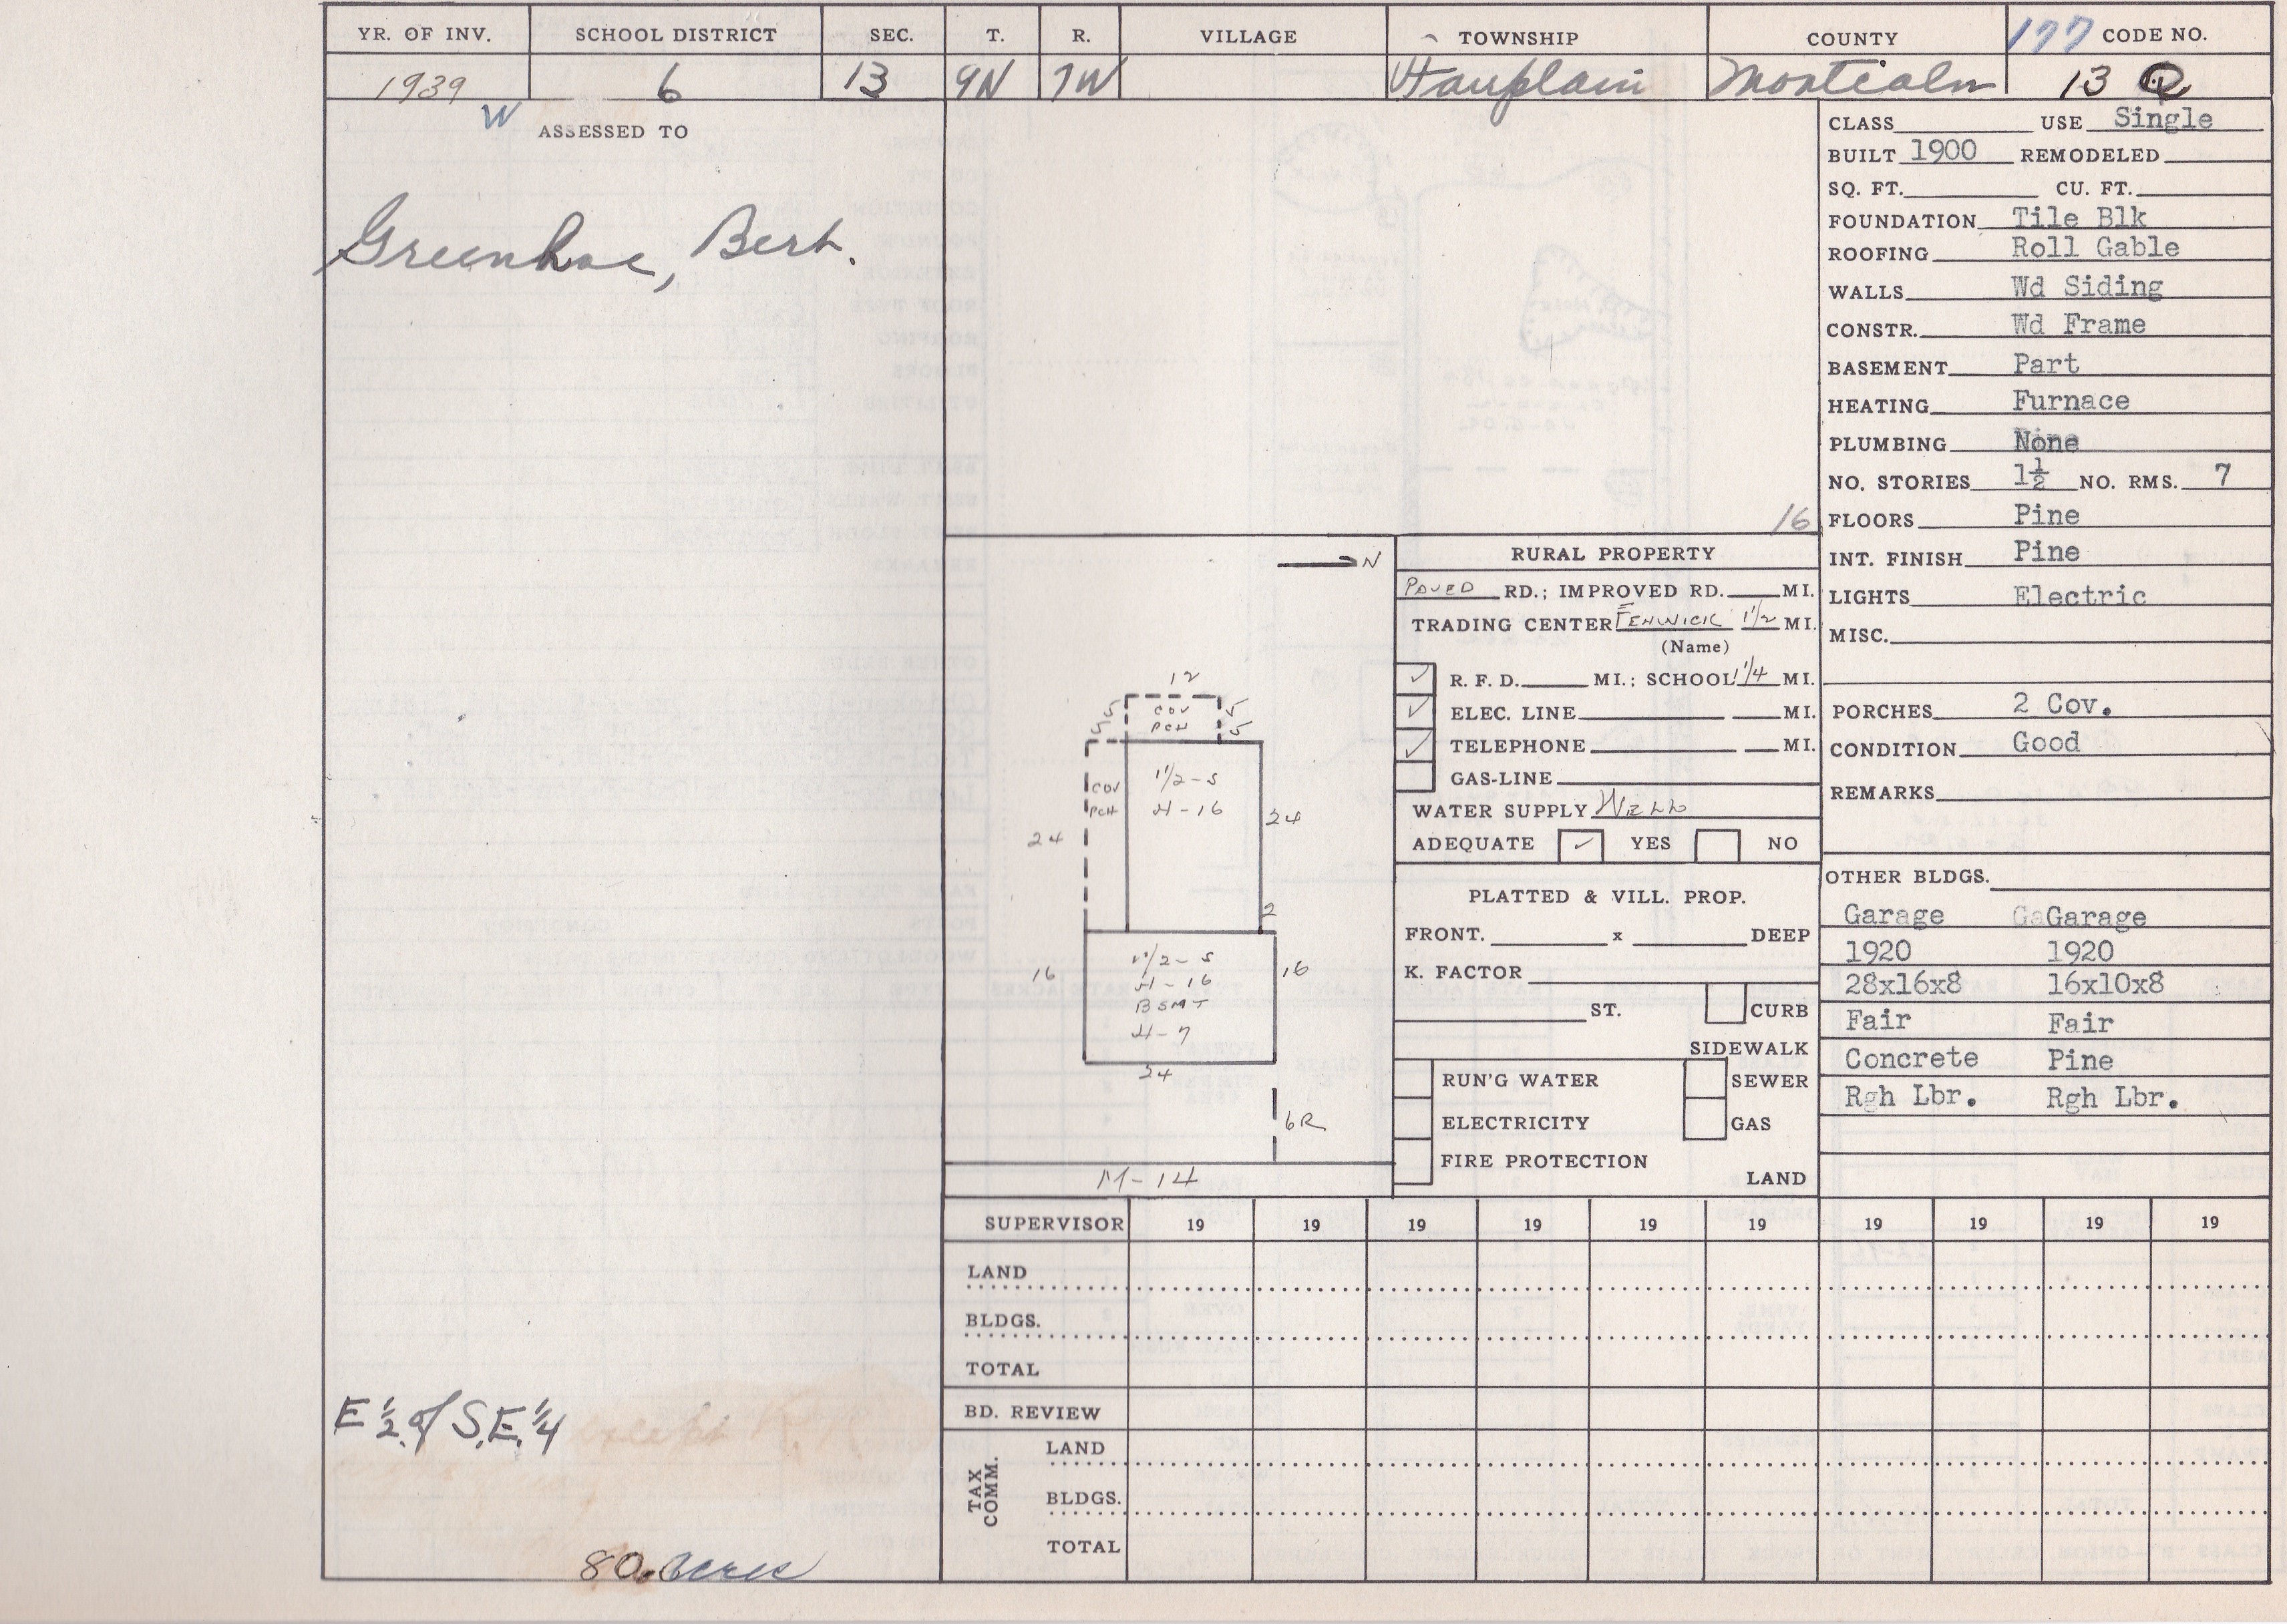 YR. OF INV. SCHOOL DISTRICT SEC. T. R. VILLAGE TOWNSHIP COUNTY 177 CODE NO.
1939 6 13 9N 7W Fairplain Montcalm 13
W ASSESSED TO
Greenhoe, Bert.
E 1/2 of S.E. 1/4
80. acres
16
N
12
5 COV 5
5 PCH 5
1 1/2 - S
COV
PCH
H - 16
24
24
2
1 1/2 - S
16
H - 16
16
BSMT
H - 7
24
6R
M-14
RURAL PROPERTY
PAVED RD.; IMPROVED RD. MI.
TRADING CENTER FENWICK 1 1/2 MI.
(Name)
R. F. D. MI.; SCHOOL 1 1/4 MI.
ELEC. LINE MI.
TELEPHONE MI.
GAS-LINE
WATER SUPPLY WELL
ADEQUATE YES NO
PLATTED & VILL. PROP.
FRONT. x DEEP
K. FACTOR
ST. CURB
SIDEWALK
RUN'G WATER SEWER
ELECTRICITY GAS
FIRE PROTECTION
LAND
CLASS USE Single
BUILT 1900 REMODELED
SQ. FT. CU. FT.
FOUNDATION Tile Blk
ROOFING Roll Gable
WALLS Wd Siding
CONSTR. Wd Frame
BASEMENT Part
HEATING Furnace
PLUMBING None
NO. STORIES 1½ NO. RMS. 7
FLOORS Pine
INT. FINISH Pine
LIGHTS Electric
MISC.
PORCHES 2 Cov.
CONDITION Good
REMARKS
OTHER BLDGS.
Garage GaGarage
1920 1920
28x16x8 16x10x8
Fair Fair
Concrete Pine
Rgh Lbr. Rgh Lbr.
SUPERVISOR 19 19 19 19 19 19 19 19 19 19
LAND
BLDGS.
TOTAL
BD. REVIEW
TAX COMM.
LAND
BLDGS.
TOTAL